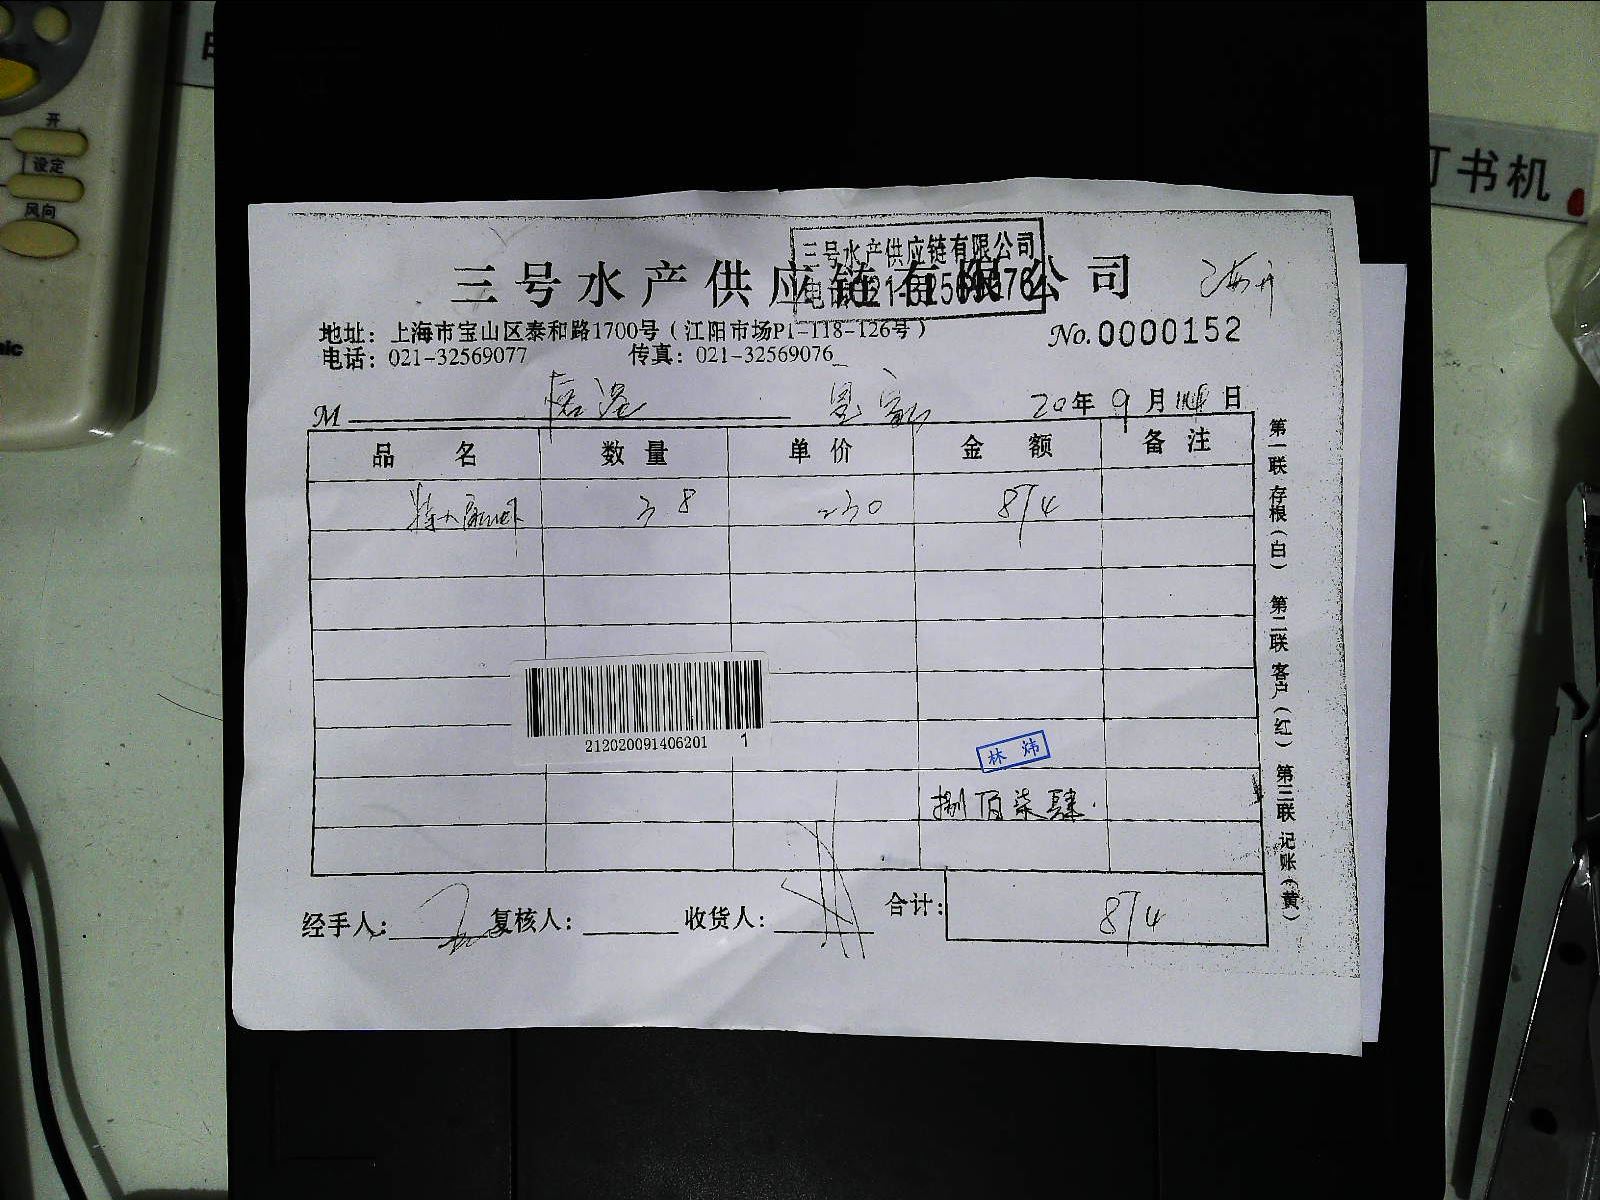 开
设定
风向
订书机
三号水产供应链有限公司
三号水产供应链有限公司
地址：上海市宝山区泰和路1700号（江阳市场P1-118-126号）
No.0000152
电话：021-32569077 传真：021-32569076
M 20年9月14日
品名 数量 单价 金额 备注
特大 38 230 874
212020091406201 1
林炜
捌百柒肆
经手人： 复核人： 收货人： 合计： 874
第一联 存根（白） 第二联 客户（红） 第三联 记账（黄）